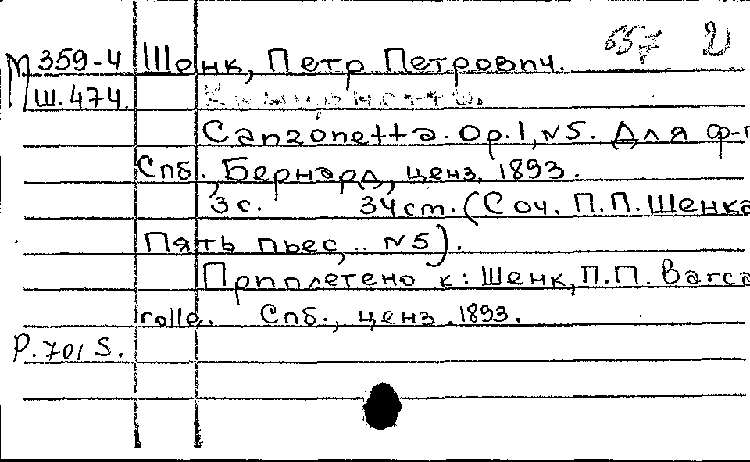 М 359-4 Шенк, Петр Петрович. 657 2
Ш.474.
Canzonetta. Op.1, N5. Для ф-п
Спб., Бернард, ценз. 1893.
3с. 34 cm. (Соч. П.П. Шенка
Пять пьес, .. N5).
Приплетено к: Шенк, П.П. Barca
rolle. Спб., ценз. 1893.
Р. 701 S.